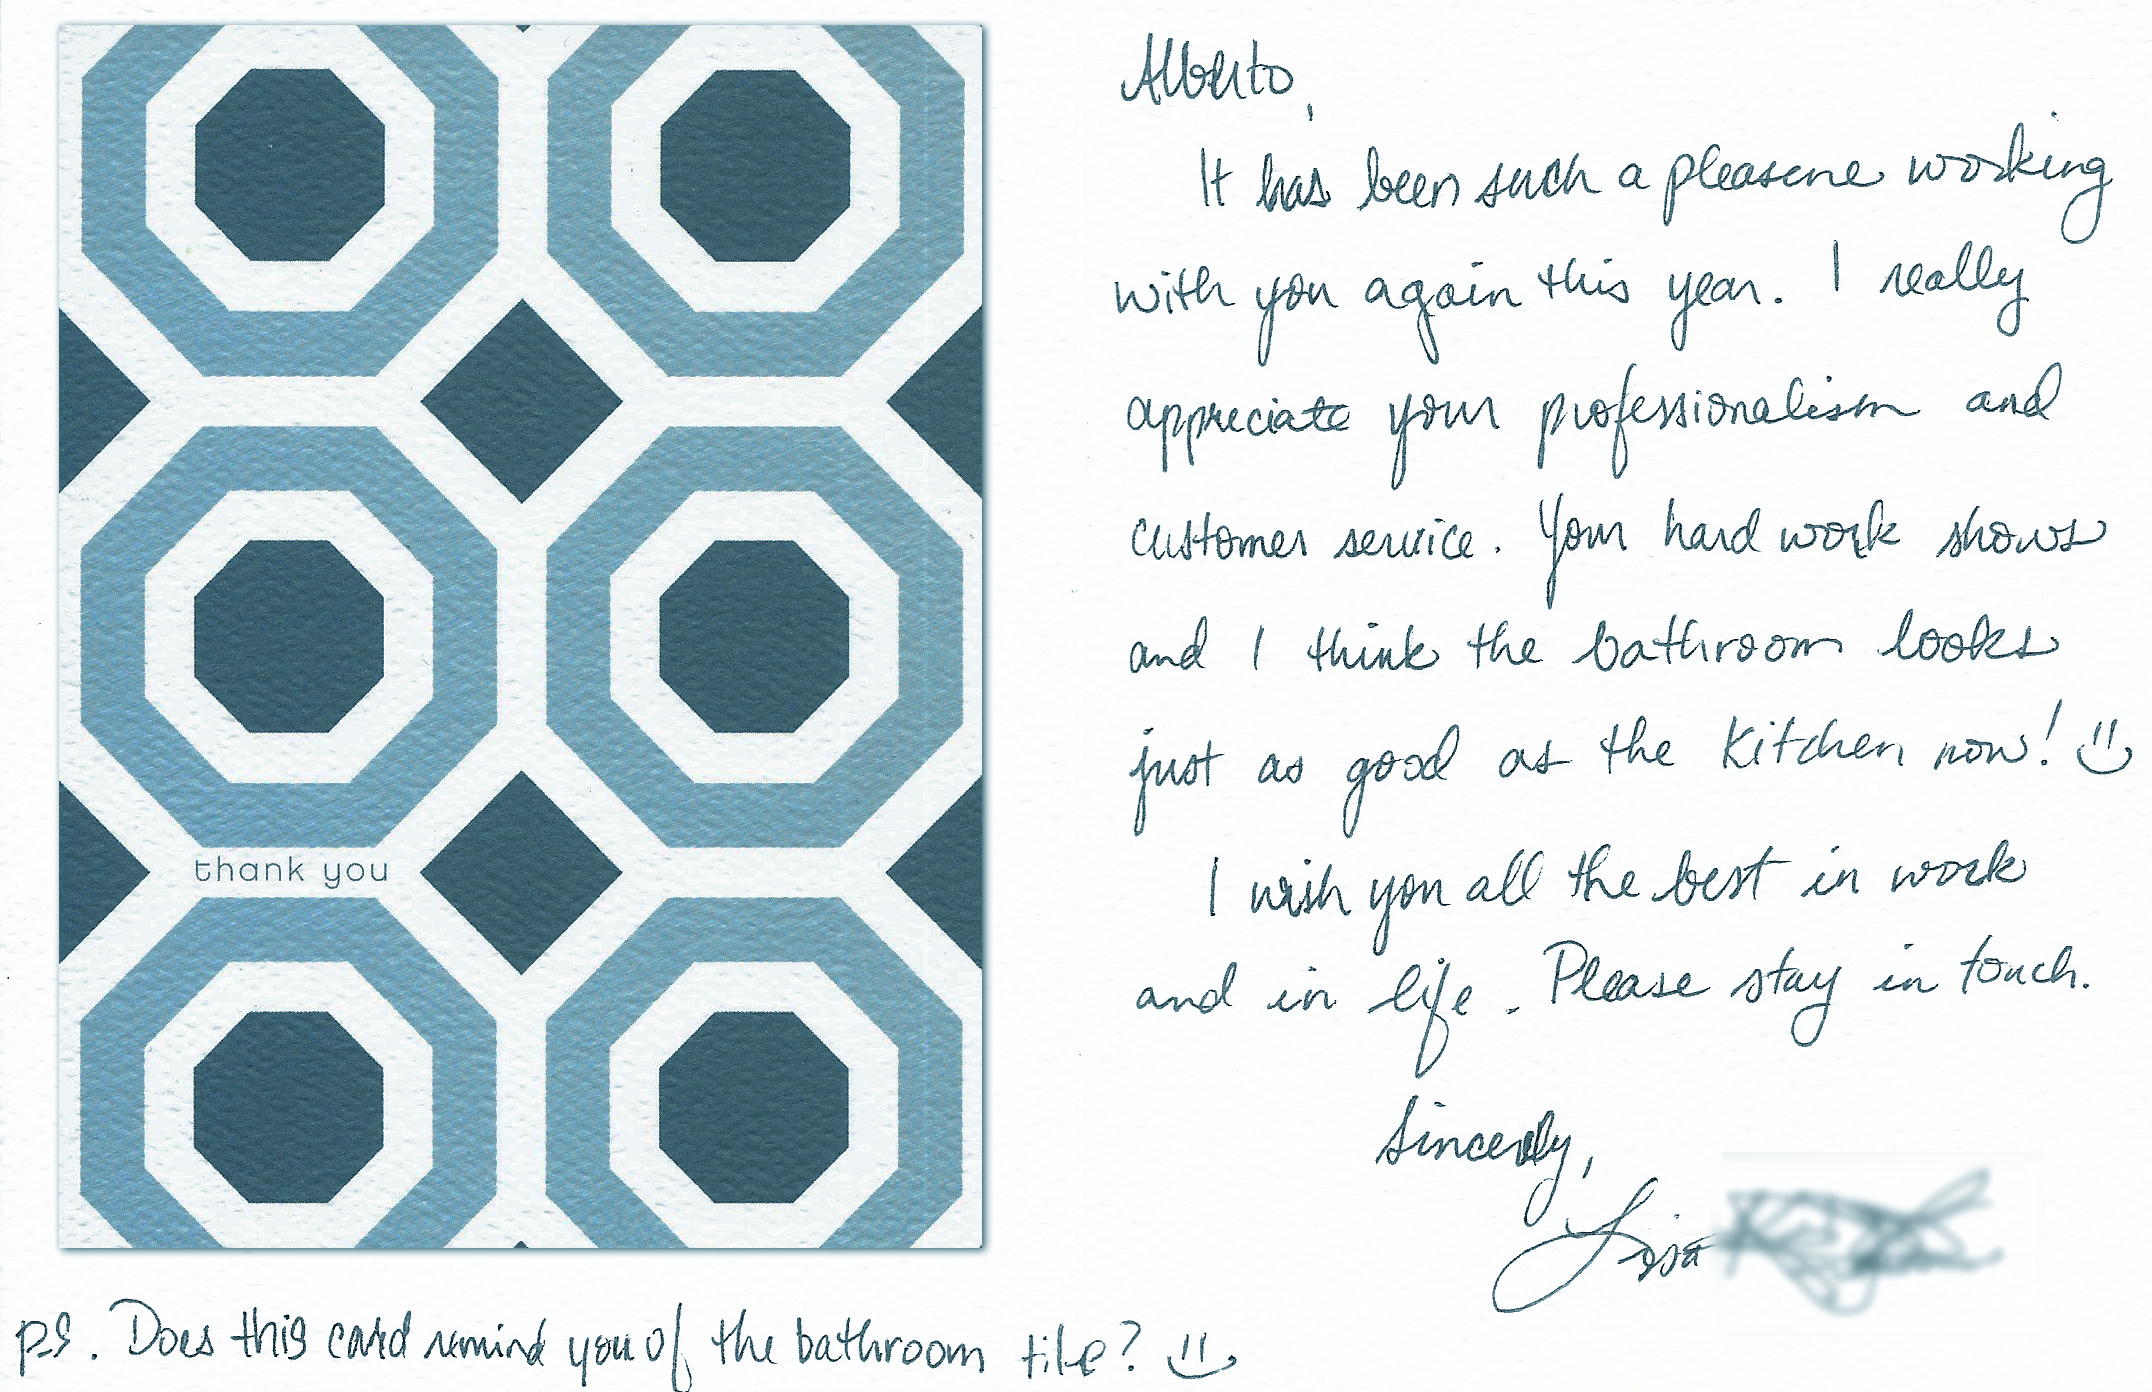 thank you
Alberto,
It has been such a pleasure working
with you again this year. I really
appreciate your professionalism and
customer service. Your hard work shows
and I think the bathroom looks
just as good as the kitchen now!
I wish you all the best in work
and in life. Please stay in touch.
Sincerely,
Lisa
p.s. Does this card remind you of the bathroom tile?